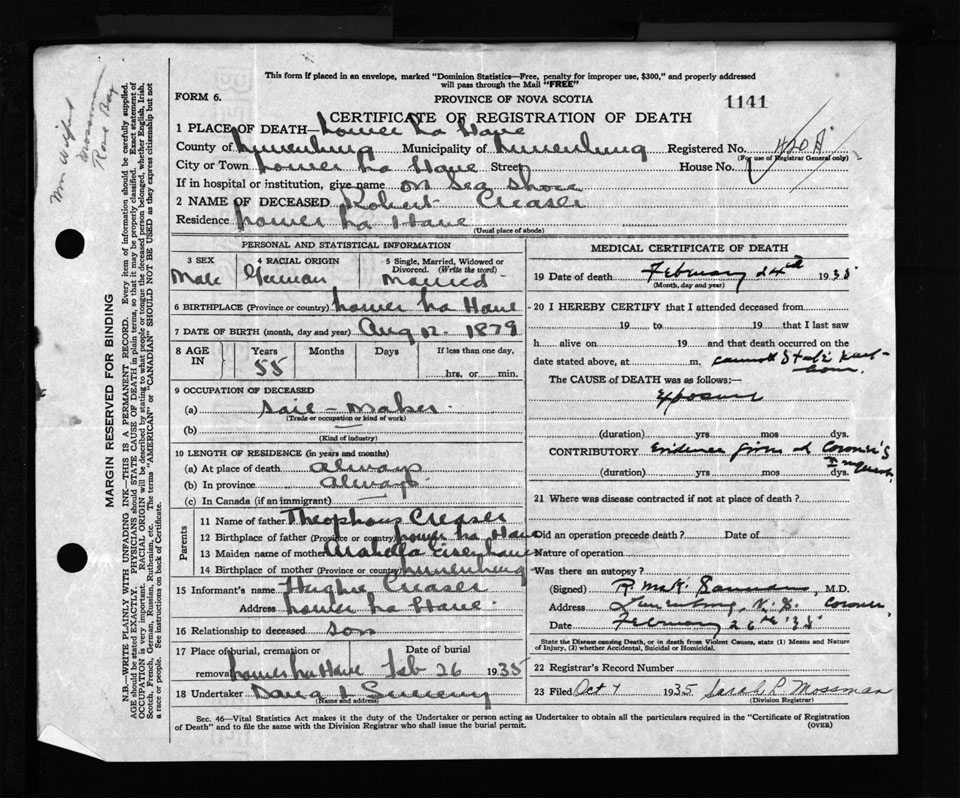 This form if placed in an envelope, marked "Dominion Statistics—Free, penalty for improper use, $300," and properly addressed
will pass through the Mail "FREE"
FORM 6.
PROVINCE OF NOVA SCOTIA
1141
CERTIFICATE OF REGISTRATION OF DEATH
1 PLACE OF DEATH—Lower La Have
County of Lunenburg Municipality of Lunenburg Registered No. 420A
(For use of Registrar General only)
City or Town Lower La Have Street House No.
If in hospital or institution, give name on sea shore
2 NAME OF DECEASED Robert Creaser
Residence Lower La Have
(Usual place of abode)
PERSONAL AND STATISTICAL INFORMATION
3 SEX 4 RACIAL ORIGIN 5 Single, Married, Widowed or
Divorced. (Write the word)
Male German Married
6 BIRTHPLACE (Province or country) Lower La Have
7 DATE OF BIRTH (month, day and year) Aug 12 1879
8 AGE IN Years Months Days If less than one day,
55 hrs. or min.
9 OCCUPATION OF DECEASED
(a) Sail-Maker
(Trade or occupation or kind of work)
(b)
(Kind of industry)
10 LENGTH OF RESIDENCE (in years and months)
(a) At place of death always
(b) In province always
(c) In Canada (if an immigrant)
Parents
11 Name of father Theophous Creaser
12 Birthplace of father (Province or country) Lower La Have
13 Maiden name of mother Arabella Eisenhauer
14 Birthplace of mother (Province or country) Lunenburg
15 Informant's name Hughie Creaser
Address Lower La Have
16 Relationship to deceased son
17 Place of burial, cremation or Date of burial
removal Lower La Have Feb 26 1935
18 Undertaker Sweeny
(Name and address)
MEDICAL CERTIFICATE OF DEATH
19 Date of death February 24th 1935
(Month, day and year)
20 I HEREBY CERTIFY that I attended deceased from
19 to 19 that I last saw
h alive on 19 and that death occurred on the
date stated above, at m. cannot state
The CAUSE of DEATH was as follows:—
Exposure
(duration) yrs mos dys.
CONTRIBUTORY Evidence from Coroner's
Inquest
(duration) yrs mos dys.
21 Where was disease contracted if not at place of death?
Did an operation precede death? Date of
Nature of operation
Was there an autopsy?
(Signed) R. McK. M.D.
Address Lunenburg, N.S. Coroner
Date February 26th 35
State the Disease causing Death, or in death from Violent Causes, state (1) Means and Nature
of Injury, (2) whether Accidental, Suicidal or Homicidal.
22 Registrar's Record Number
23 Filed Oct 7 1935 Sarah R. Mossman
(Division Registrar)
Sec. 46—Vital Statistics Act makes it the duty of the Undertaker or person acting as Undertaker to obtain all the particulars required in the "Certificate of Registration
of Death" and to file the same with the Division Registrar who shall issue the burial permit. (OVER)
MARGIN RESERVED FOR BINDING
N.B.—WRITE PLAINLY WITH UNFADING INK—THIS IS A PERMANENT RECORD. Every item of information should be carefully supplied.
AGE should be stated EXACTLY. PHYSICIANS should STATE CAUSE OF DEATH in plain terms, so that it may be properly classified. Exact statement of
OCCUPATION is very important. RACIAL ORIGIN will be described by stating to what people or tongue the deceased person belonged, whether English, Irish,
Scotch, French, German, Russian, Ruthenian, etc. The terms "AMERICAN" or "CANADIAN" SHOULD NOT BE USED as they express citizenship but not
a race or people. See instructions on back of Certificate.